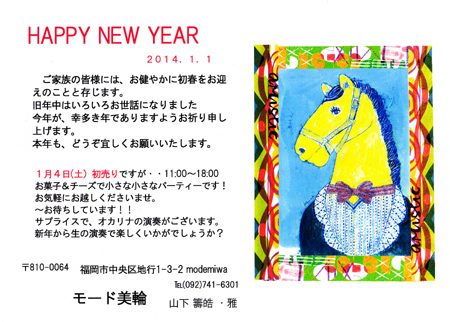 HAPPY NEW YEAR
2014.1.1
ご家族の皆様には、お健やかに初春をお迎
えのことと存じます。
旧年中はいろいろお世話になりました
今年が、幸多き年でありますようお祈り申し
上げます。
本年も、どうぞ宜しくお願いいたします。
1月4日(土) 初売りですが・・11:00～18:00
お菓子&チーズで小さな小さなパーティーです!
お気軽にお越しくださいませ。
～お待ちしています!!
サプライズで、オカリナの演奏がございます。
新年から生の演奏で楽しいかがでしょうか?
〒810-0064 福岡市中央区地行1-3-2 modemiwa
℡(092)741-6301
モード美輪 山下 籌皓 ・雅
amustie
amustie